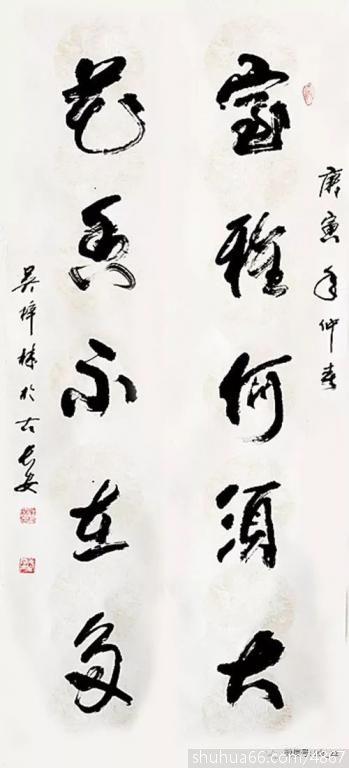 庚寅年仲春
室雅何须大
花香不在多
吴梓林於古长安
shuhua66.com/4867